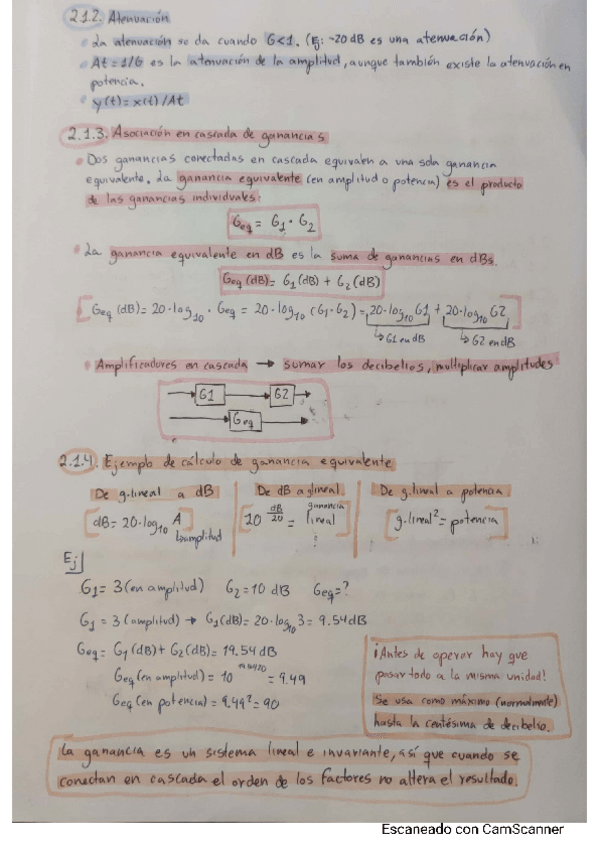 2.1.2. Atenuación
• La atenuación se da cuando G<1. (Ej: -20 dB es una atenuación)
• At = 1/G es la atenuación de la amplitud, aunque también existe la atenuación en
potencia.
• y(t) = x(t)/At
2.1.3. Asociación en cascada de ganancias
• Dos ganancias conectadas en cascada equivalen a una sola ganancia
equivalente. La ganancia equivalente (en amplitud o potencia) es el producto
de las ganancias individuales:
Geq = G1 · G2
• La ganancia equivalente en dB es la suma de ganancias en dBs.
Geq (dB) = G1 (dB) + G2 (dB)
[Geq (dB) = 20·log10 · Geq = 20·log10 (G1·G2) = 20·log10 G1 + 20·log10 G2]
↳ G1 en dB ↳ G2 en dB
• Amplificadores en cascada → sumar los decibelios, multiplicar amplitudes
G1 G2
Geq
2.1.4. Ejemplo de cálculo de ganancia equivalente
De g.lineal a dB De dB a g.lineal De g.lineal a potencia
[dB = 20·log10 A] [10^(dB/20) = ganancia lineal] [g.lineal² = potencia]
↳ amplitud
Ej
G1 = 3 (en amplitud) G2 = 10 dB Geq = ?
G1 = 3 (amplitud) → G1(dB) = 20·log10 3 = 9.54 dB
Geq = G1 (dB) + G2 (dB) = 19.54 dB
Geq (en amplitud) = 10 = 9.49
Geq (en potencia) = 9.49² = 90
¡Antes de operar hay que
pasar todo a la misma unidad!
Se usa como máximo (normalmente)
hasta la centésima de decibelio.
La ganancia es un sistema lineal e invariante, así que cuando se
conectan en cascada el orden de los factores no altera el resultado.
Escaneado con CamScanner